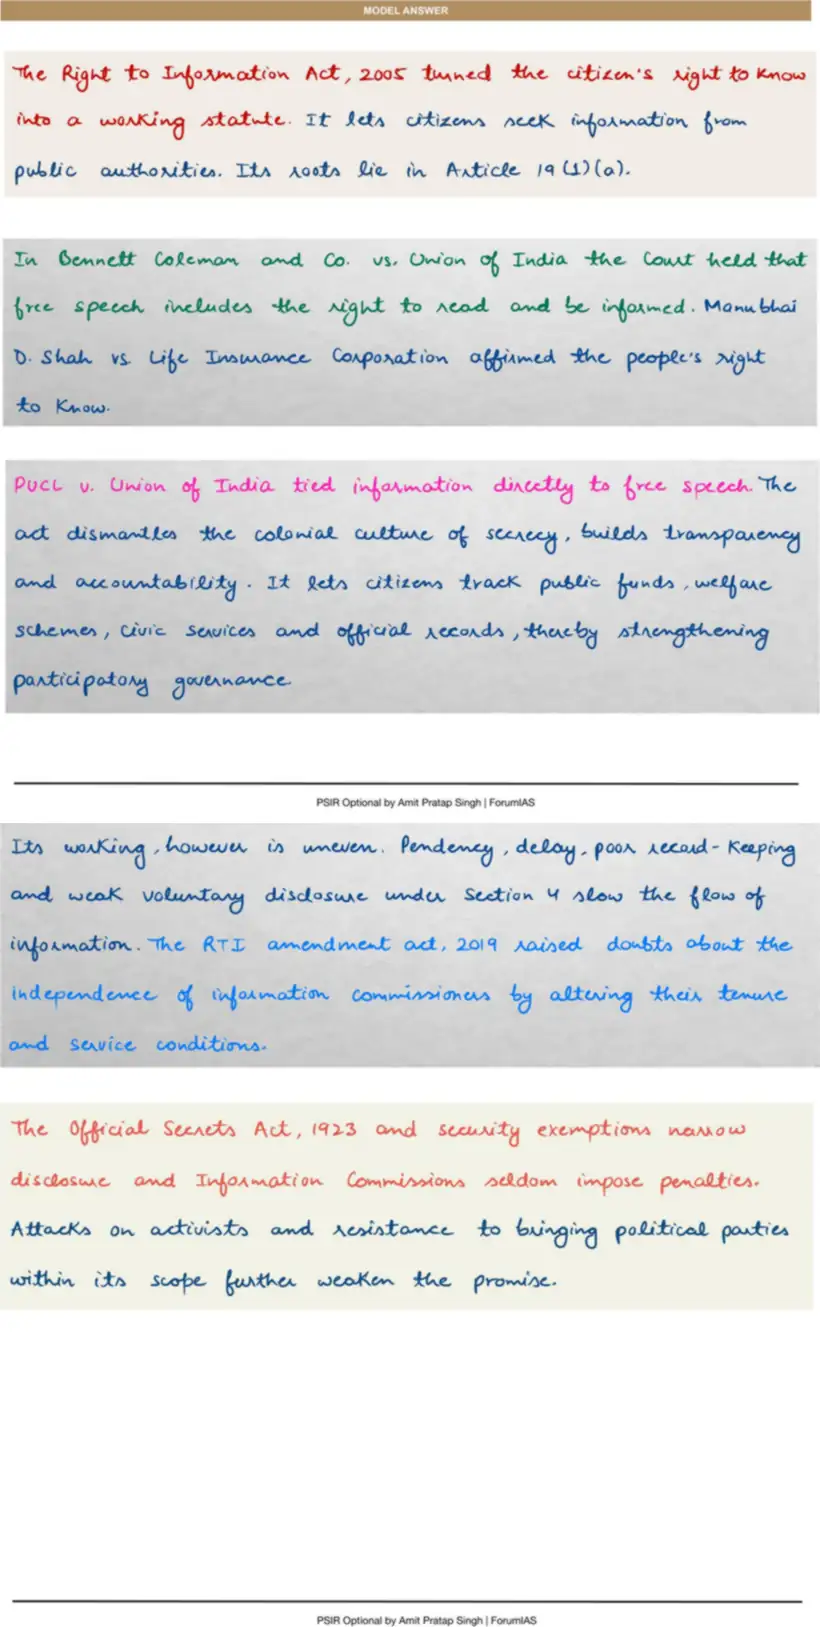 MODEL ANSWER
The Right to Information Act, 2005 turned the citizen's right to know
into a working statute. It lets citizens seek information from
public authorities. Its roots lie in Article 19(1)(a).
In Bennett Coleman and Co. vs. Union of India the Court held that
free speech includes the right to read and be informed. Manubhai
D. Shah vs Life Insurance Corporation affirmed the people's right
to know.
PUCL v. Union of India tied information directly to free speech. The
act dismantles the colonial culture of secrecy, builds transparency
and accountability. It lets citizens track public funds, welfare
schemes, civic services and official records, thereby strengthening
participatory governance
PSIR Optional by Amit Pratap Singh | ForumIAS
Its working, however is uneven. Pendency, delay, poor record-keeping
and weak voluntary disclosure under Section 4 slow the flow of
information. The RTI amendment act, 2019 raised doubts about the
independence of information commissioners by altering their tenure
and service conditions.
The Official Secrets Act, 1923 and security exemptions narrow
disclosure and Information Commissions seldom impose penalties.
Attacks on activists and resistance to bringing political parties
within its scope further weaken the promise.
PSIR Optional by Amit Pratap Singh | ForumIAS